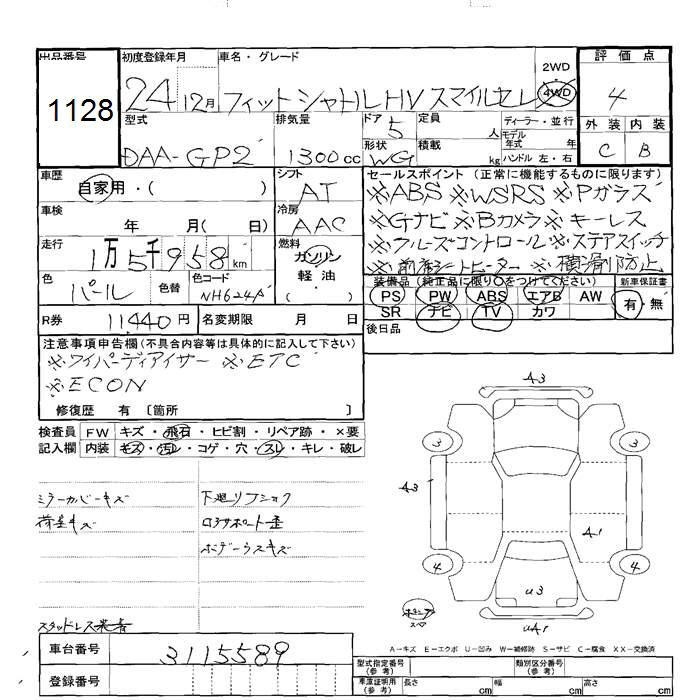 出品番号 初度登録年月 車名・グレード 2WD 評価点
1128 24 12月 フィットシャトルHV スマイルセレ 4WD 4
型式 排気量 ドア 5 定員 人 ディーラー・並行 外装 内装
モデル年式 年
DAA-GP2 1300cc 形状 WG 積載 kg ハンドル 左・右 C B
車歴 シフト セールスポイント (正常に機能するものに限ります)
自家用・( ) AT ※ABS ※WSRS ※Pガラス
車検 冷房 ※Gナビ ※Bカメラ ※キーレス
年 月( 日) AAC ※クルーズコントロール ※ステアスイッチ
走行 燃料 ※前席シートヒーター ※横滑り防止
1万5千958km ガソリン
軽・油
( )
色 パール 色替 色コード NH624P
装備品 (純正品に限り○をつけてください) 新車保証書
PS PW ABS エアB AW 有・無
SR ナビ TV カワ
R券 11440円 名変期限 月 日 後日品
注意事項申告欄(不具合内容等は具体的に記入して下さい)
※ワイパーディアイサー ※ETC
※ECON
修復歴 有 〔箇所 〕
検査員 FW キズ・飛石・ヒビ割・リペア跡・×要
記入欄 内装 キズ・汚レ・コゲ・穴・スレ・キレ・破レ
A3
3 3
A3
A1
4 4
U3
UA1
ミラーカバーキズ 下廻リフショク
荷室キズ ロアサポート歪
ボデーラスキズ
スペア
スタッドレス装着
A-キズ E-エクボ U-凹み W-補修跡 S-サビ C-腐食 XX-交換済
車台番号 3115589
型式指定番号(参考) 類別区分番号(参考)
登録番号
車庫証明用(参考) 長さ cm 幅 cm 高さ cm